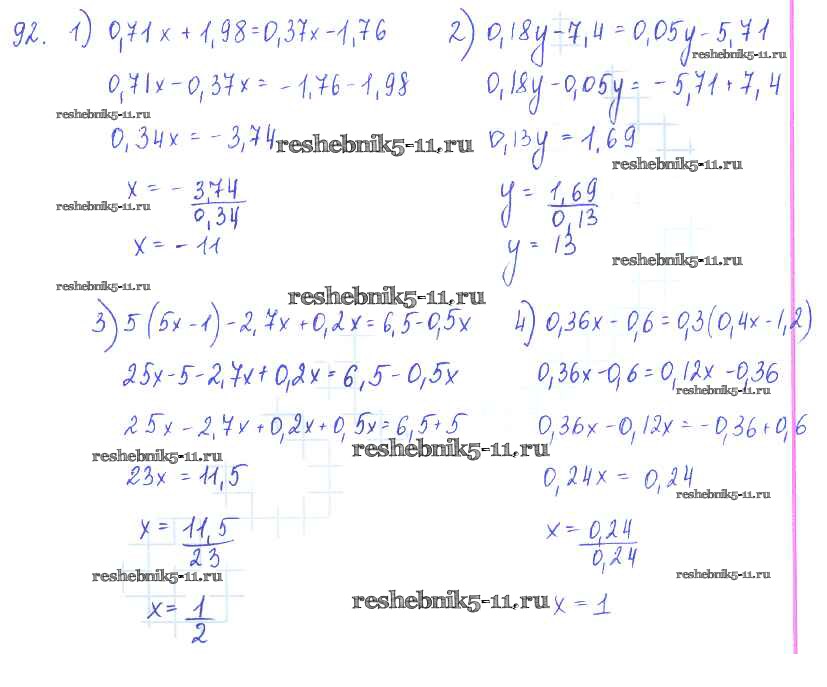 92. 1) 0,71x + 1,98 = 0,37x - 1,76
0,71x - 0,37x = - 1,76 - 1,98
reshebnik5-11.ru
0,34x = - 3,74
reshebnik5-11.ru
x = - 3,74/0,34
reshebnik5-11.ru
x = - 11
reshebnik5-11.ru
2) 0,18y - 7,4 = 0,05y - 5,71
reshebnik5-11.ru
0,18y - 0,05y = - 5,71 + 7,4
0,13y = 1,69
reshebnik5-11.ru
y = 1,69/0,13
y = 13
reshebnik5-11.ru
reshebnik5-11.ru
3) 5(5x - 1) - 2,7x + 0,2x = 6,5 - 0,5x
25x - 5 - 2,7x + 0,2x = 6,5 - 0,5x
25x - 2,7x + 0,2x + 0,5x = 6,5 + 5
reshebnik5-11.ru
reshebnik5-11.ru
23x = 11,5
x = 11,5/23
reshebnik5-11.ru
x = 1/2
reshebnik5-11.ru
4) 0,36x - 0,6 = 0,3(0,4x - 1,2)
0,36x - 0,6 = 0,12x - 0,36
reshebnik5-11.ru
0,36x - 0,12x = - 0,36 + 0,6
0,24x = 0,24
reshebnik5-11.ru
x = 0,24/0,24
reshebnik5-11.ru
x = 1